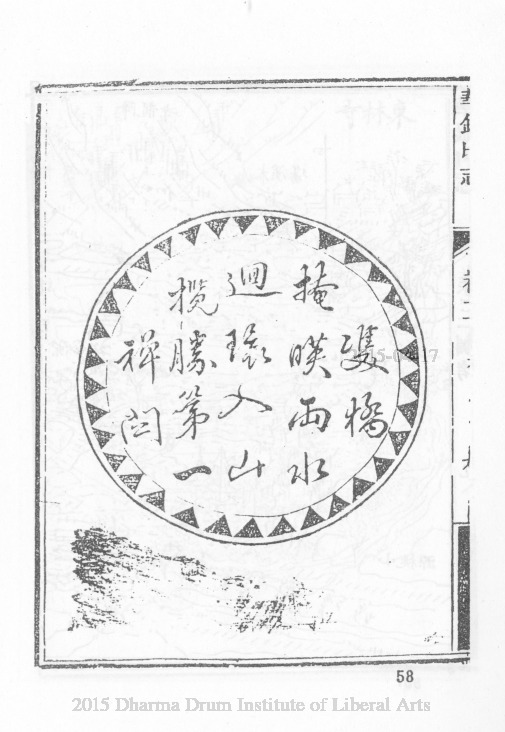 雙橋
掩暎兩水
迴環入山
攬勝第一
禪関
58
2015 Dharma Drum Institute of Liberal Arts